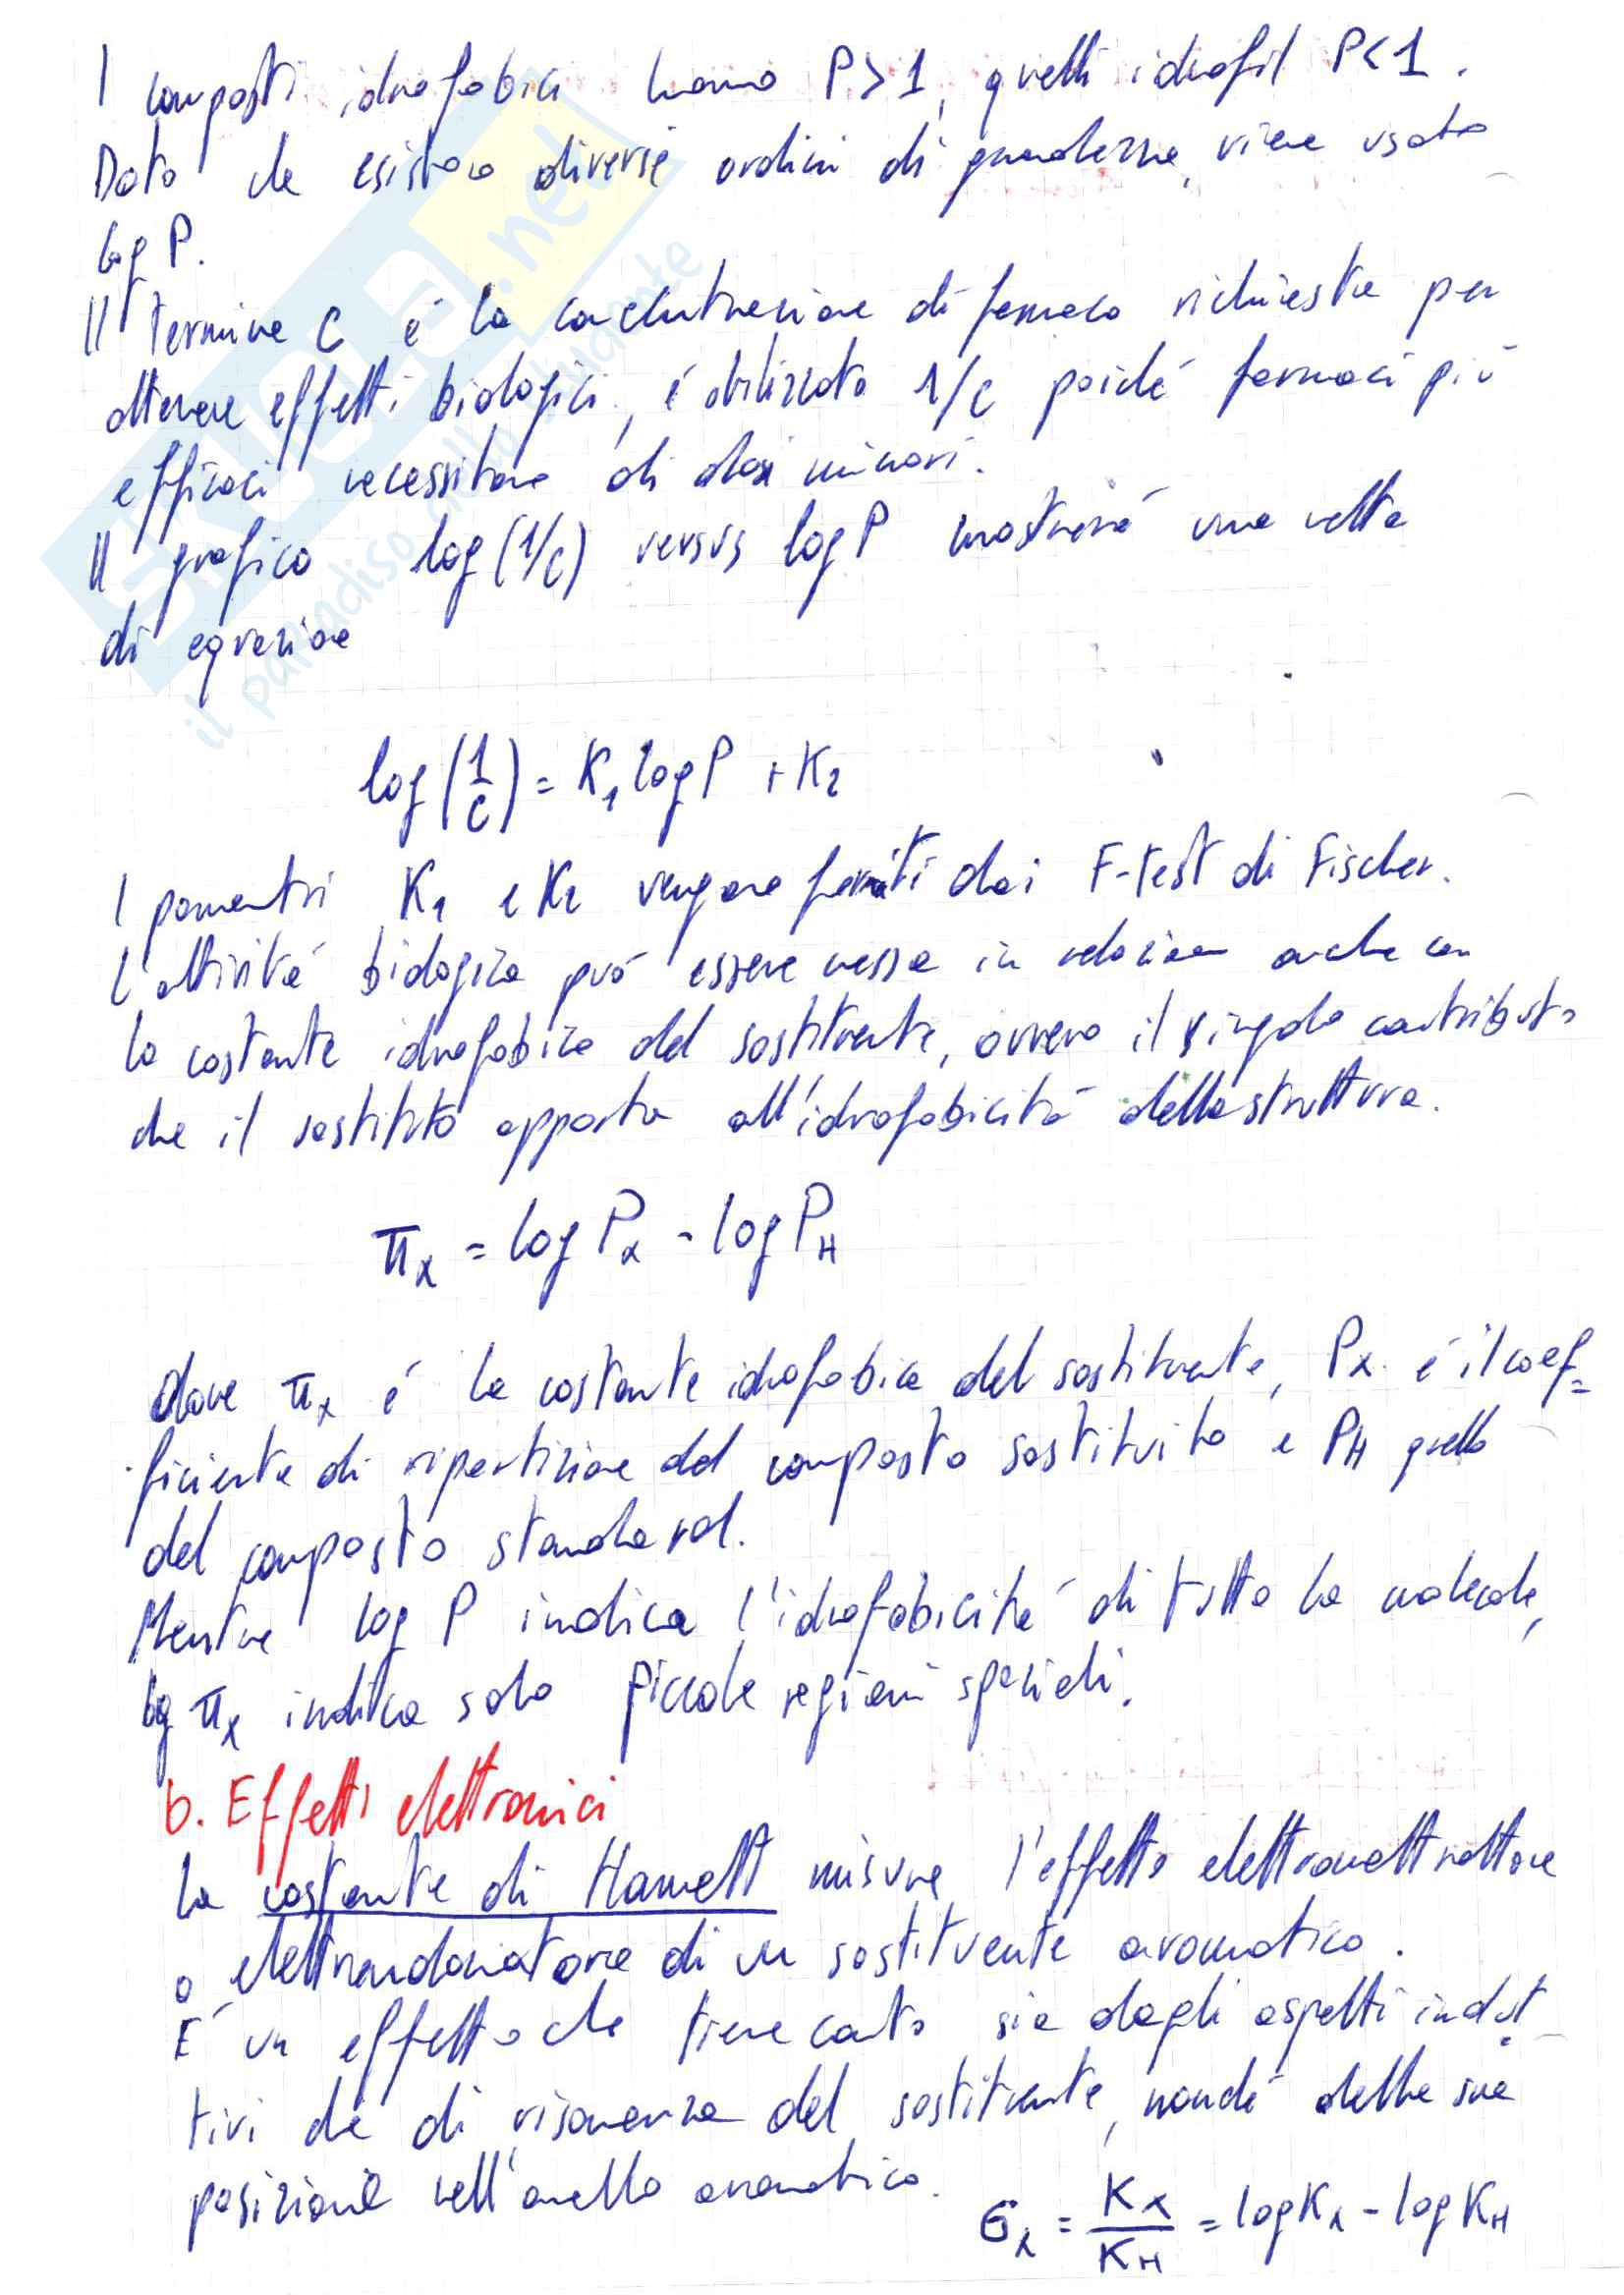 I composti idrofobici hanno P>1, quelli idrofil P<1.
Dato che esistono diversi ordini di grandezza, viene usato
log P.
Il termine C é la concentrazione di farmaco richiesta per
ottenere effetti biologici, é utilizzato 1/C poiché farmaci più
efficaci necessitano di dosi minori.
Il grafico log(1/C) versus logP mostrerá una retta
di eqrazione
log(1/C) = K₁ logP + K₂
I parametri K₁ e K₂ vengono forniti dai F-Test di Fischer.
L'attivitá biologica può essere messa in relazione anche con
la costante idrofobica del sostituente, ovvero il singolo contributo
che il sostituto apporta all'idrofobicitá della struttura.
πx = log Px - log PH
dove πx é la costante idrofobica del sostituente, Px é il coef=
ficiente di ripartizione del composto sostituito e PH quello
del composto standard.
Mentre log P indica l'idrofobicitá di tutta la molecola,
log πx indica solo piccole regioni spaziali.
b. Effetti elettronici
La costante di Hamett misura l'effetto elettronattrattore
o elettrondonatore di un sostituente aromatico.
É un effetto che tiene conto sia degli aspetti indut
tivi che di risonanza del sostituente, nonché della sua
posizione nell'anello aromatico.
σx = Kx/KH = logKx - logKH
skuola.net
il paradiso dello studente